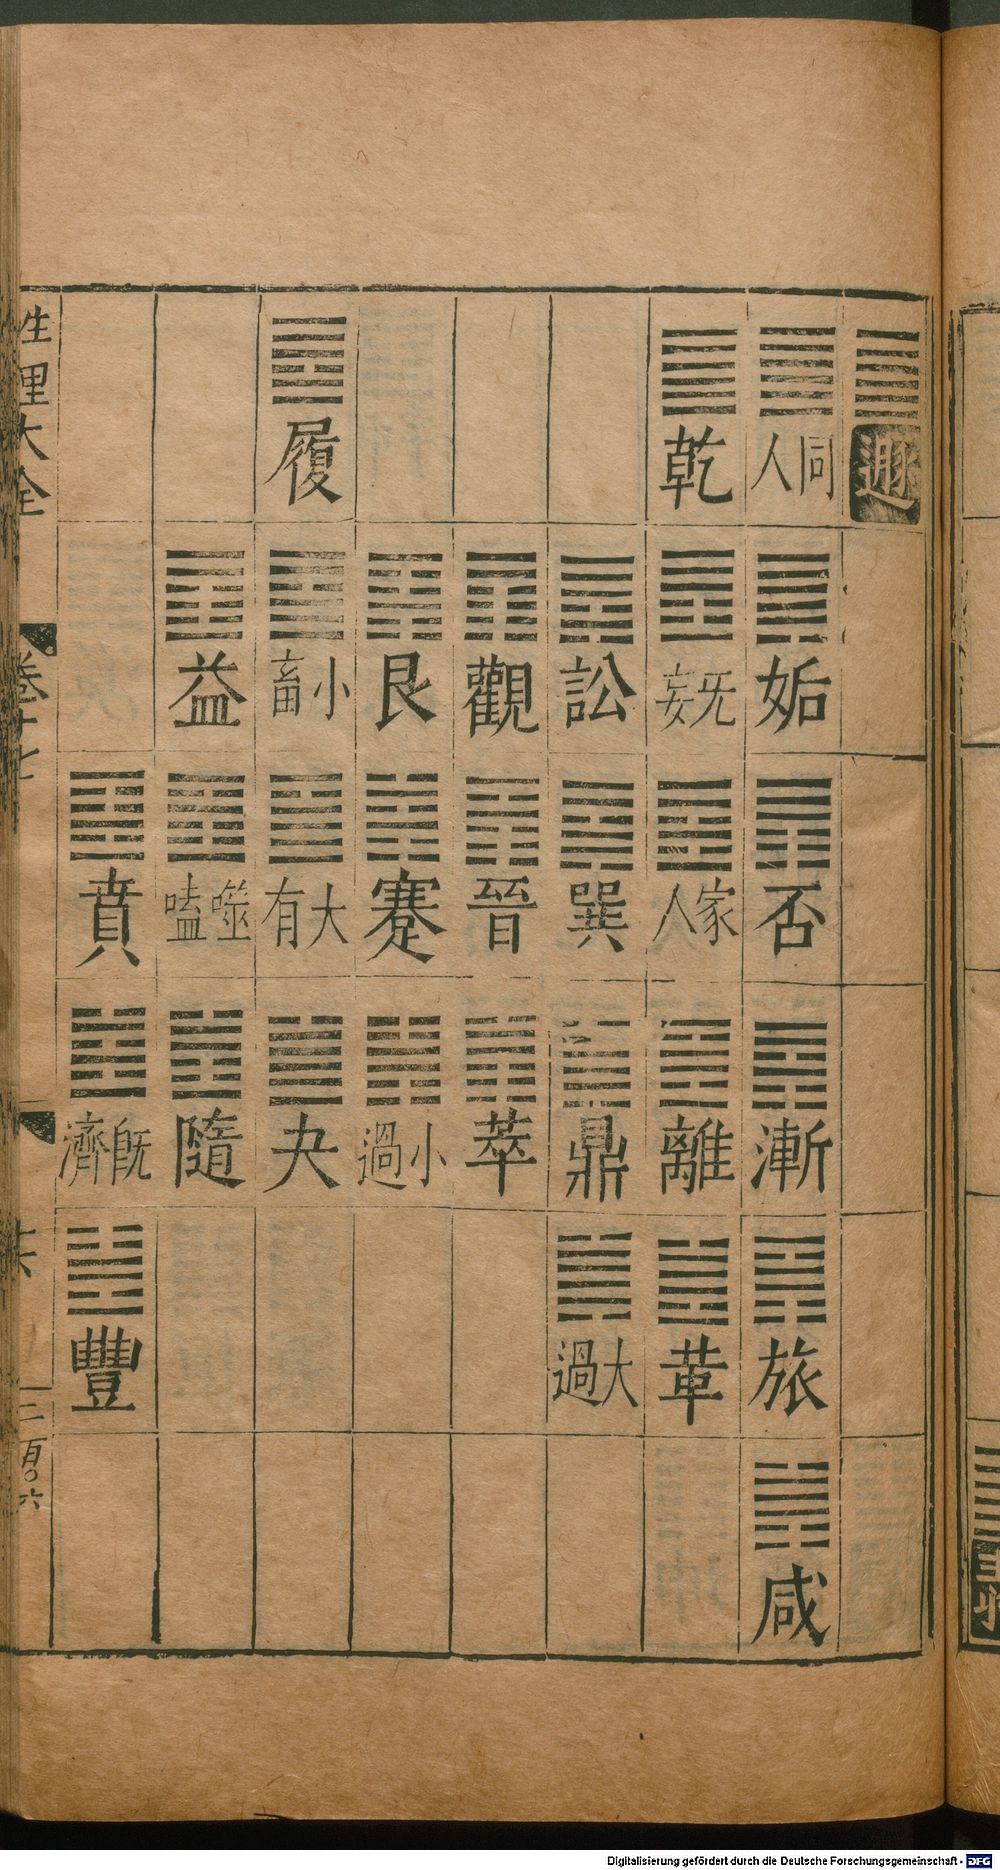 遯
同人
姤
否
漸
旅
咸
乾
旡妄
家人
離
革
訟
巽
鼎
大過
觀
晉
萃
艮
蹇
小過
履
小畜
大有
夬
益
噬嗑
隨
賁
旣濟
豐
性理大全
卷十七
Digitalisierung gefördert durch die Deutsche Forschungsgemeinschaft - DFG